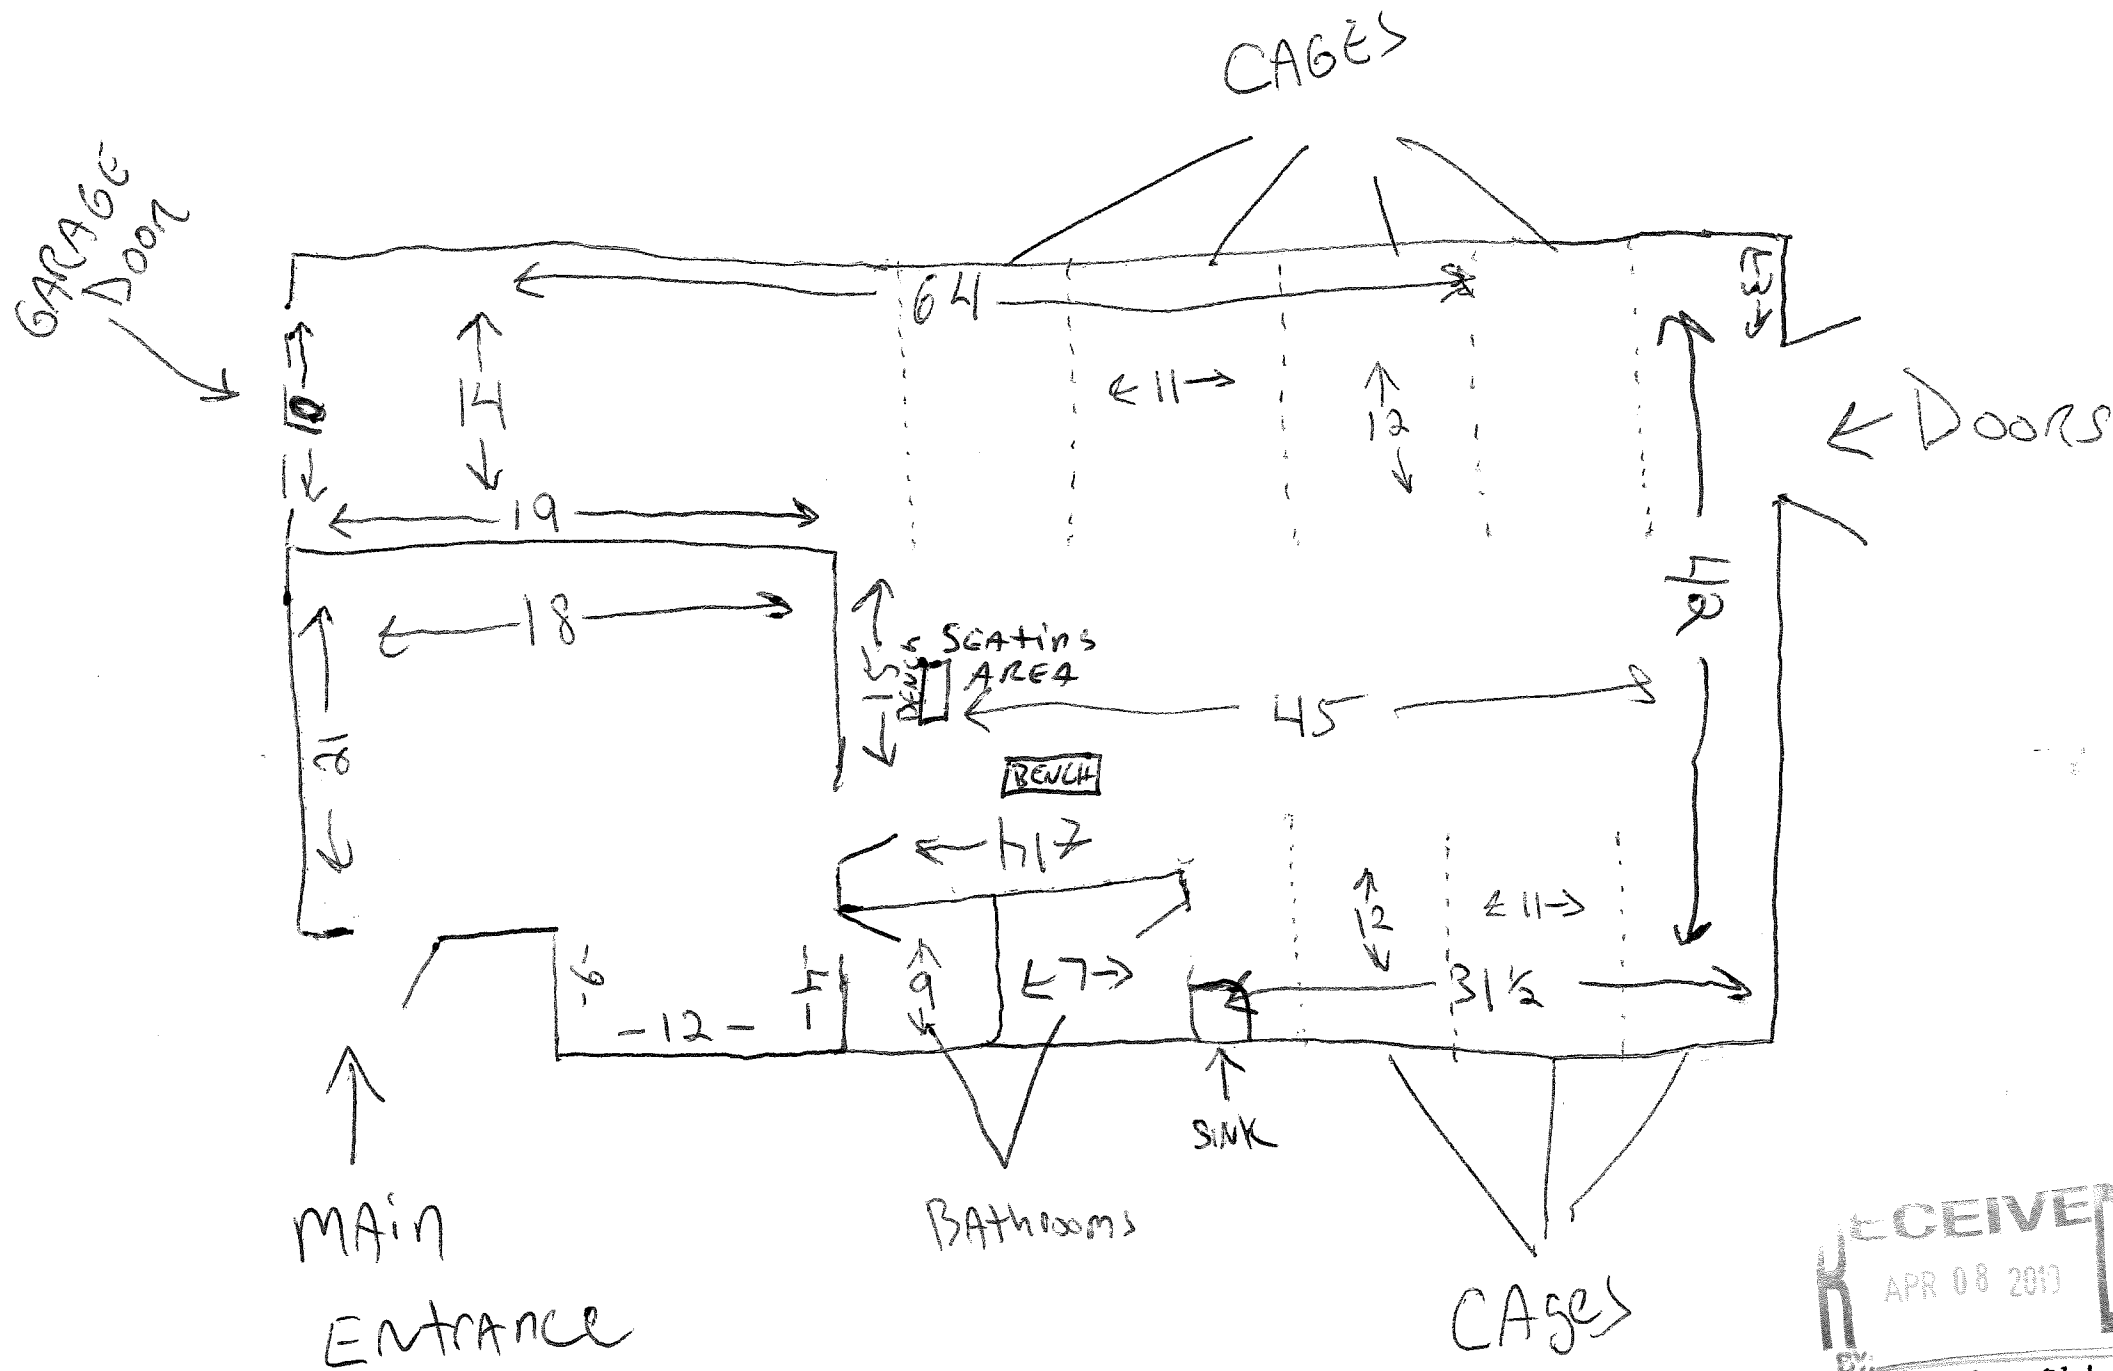 CAGES
GARAGE
DOOR
64
13
10
14
11
12
DOORS
19
18
SEATING
AREA
15
BENCH
45
21
BENCH
12
11
6
9
7
31 1/2
-12-
SINK
MAIN
ENTRANCE
BAthrooms
CAges
RECEIVED
APR 08 2019
BY: